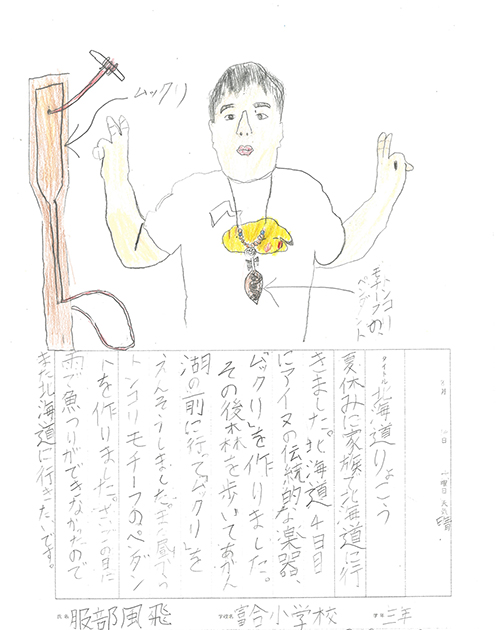 ムックリ
トンコー
モチーフの、
ペンダント
月 日 曜日 天気 晴
タイトル 北海道りょこう
夏休みに家族で北海道に行
きました。北海道4日目
にアイヌの伝統的な楽器、
「ムックリ」を作りました。
その後森を歩いてあかん
湖の前に行ってムックリを
えんそうしました。
トンコリモチーフのペンダン
トを作りました。
雨で魚つりができなかったので
また北海道に行きたいです。
氏名 服部風飛 学校名 富合小学校 学年 三年